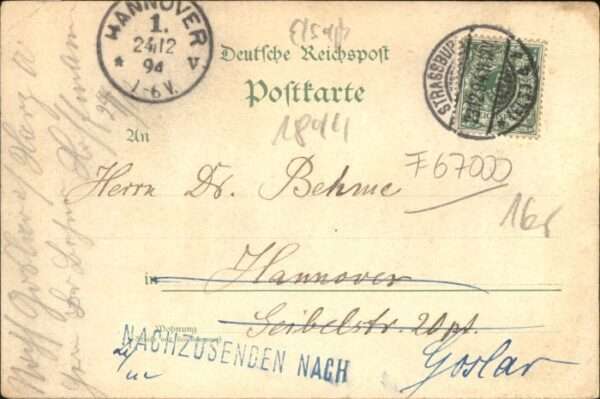 HANNOVER
1.
24/12
94
* V
1-6 V.
Elsaß
Deutsche Reichspost
Postkarte
STRASSBURG
1894
An
F67000
Herrn Dr. Behme
16€
in Hannover
Wohnung
Geibelstr. 20 pt.
NACHZUSENDEN NACH
Goslar
Goslar a/ Harz